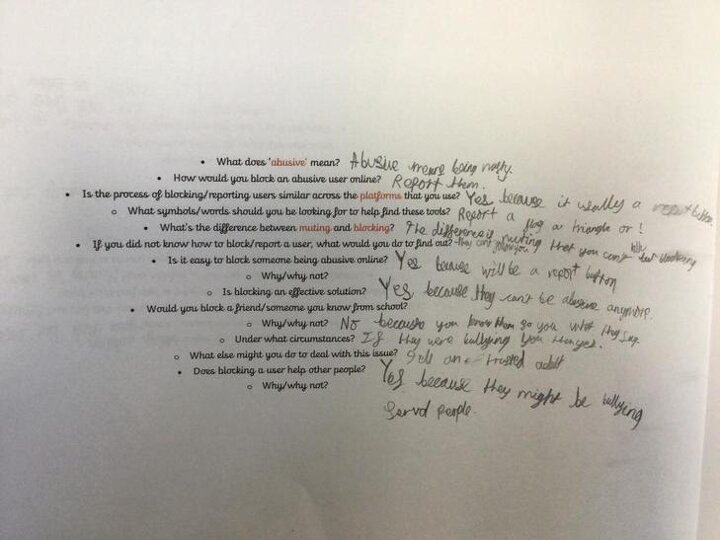 • What does 'abusive' mean? Abusive means being nasty.
• How would you block an abusive user online? Report them.
• Is the process of blocking/reporting users similar across the platforms that you use? Yes because it usally a button.
o What symbols/words should you be looking for to help find these tools? Report a flag a triangle or !
• What's the difference between muting and blocking? The difference is muting that you can't but blocking they can't
• If you did not know how to block/report a user, what would you do to find out?
• Is it easy to block someone being abusive online? Yes because will be a report button
o Why/why not?
o Is blocking an effective solution? Yes, because they can't be abusive anymore.
• Would you block a friend/someone you know from school?
o Why/why not? No because you know them so you
o Under what circumstances? If they were bullying you
o What else might you do to deal with this issue? Tell an trusted adult
• Does blocking a user help other people? Yes because they might be bullying
o Why/why not?
people.